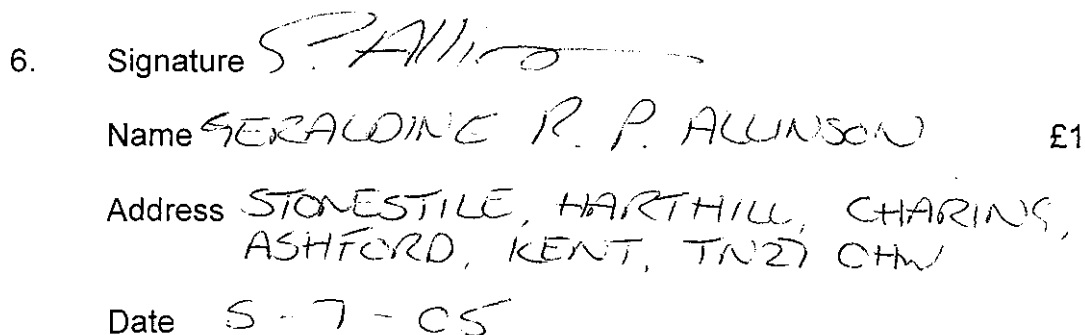 6. Signature G. Allinson
Name GERALDINE R. P. ALLINSON £1
Address STONESTILE, HARTHILL, CHARING,
ASHFORD, KENT, TN27 0HW
Date 5-7-05